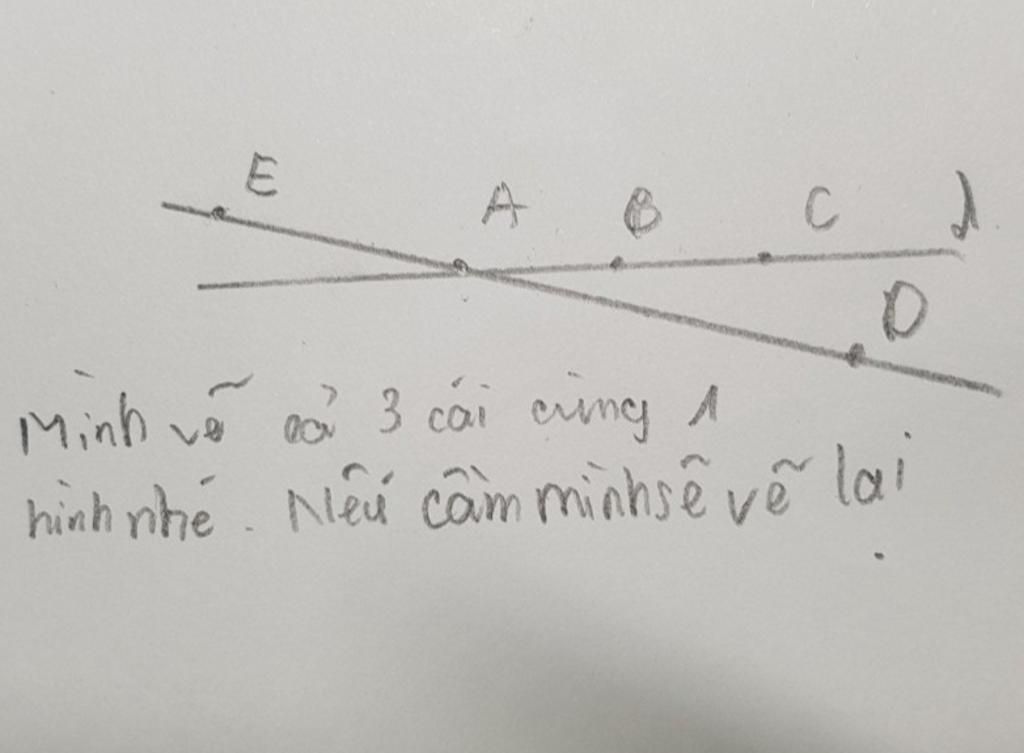 E A B C d
D
Mình vẽ cả 3 cái cùng 1
hình nhé. Nếu cầm mình sẽ vẽ lại